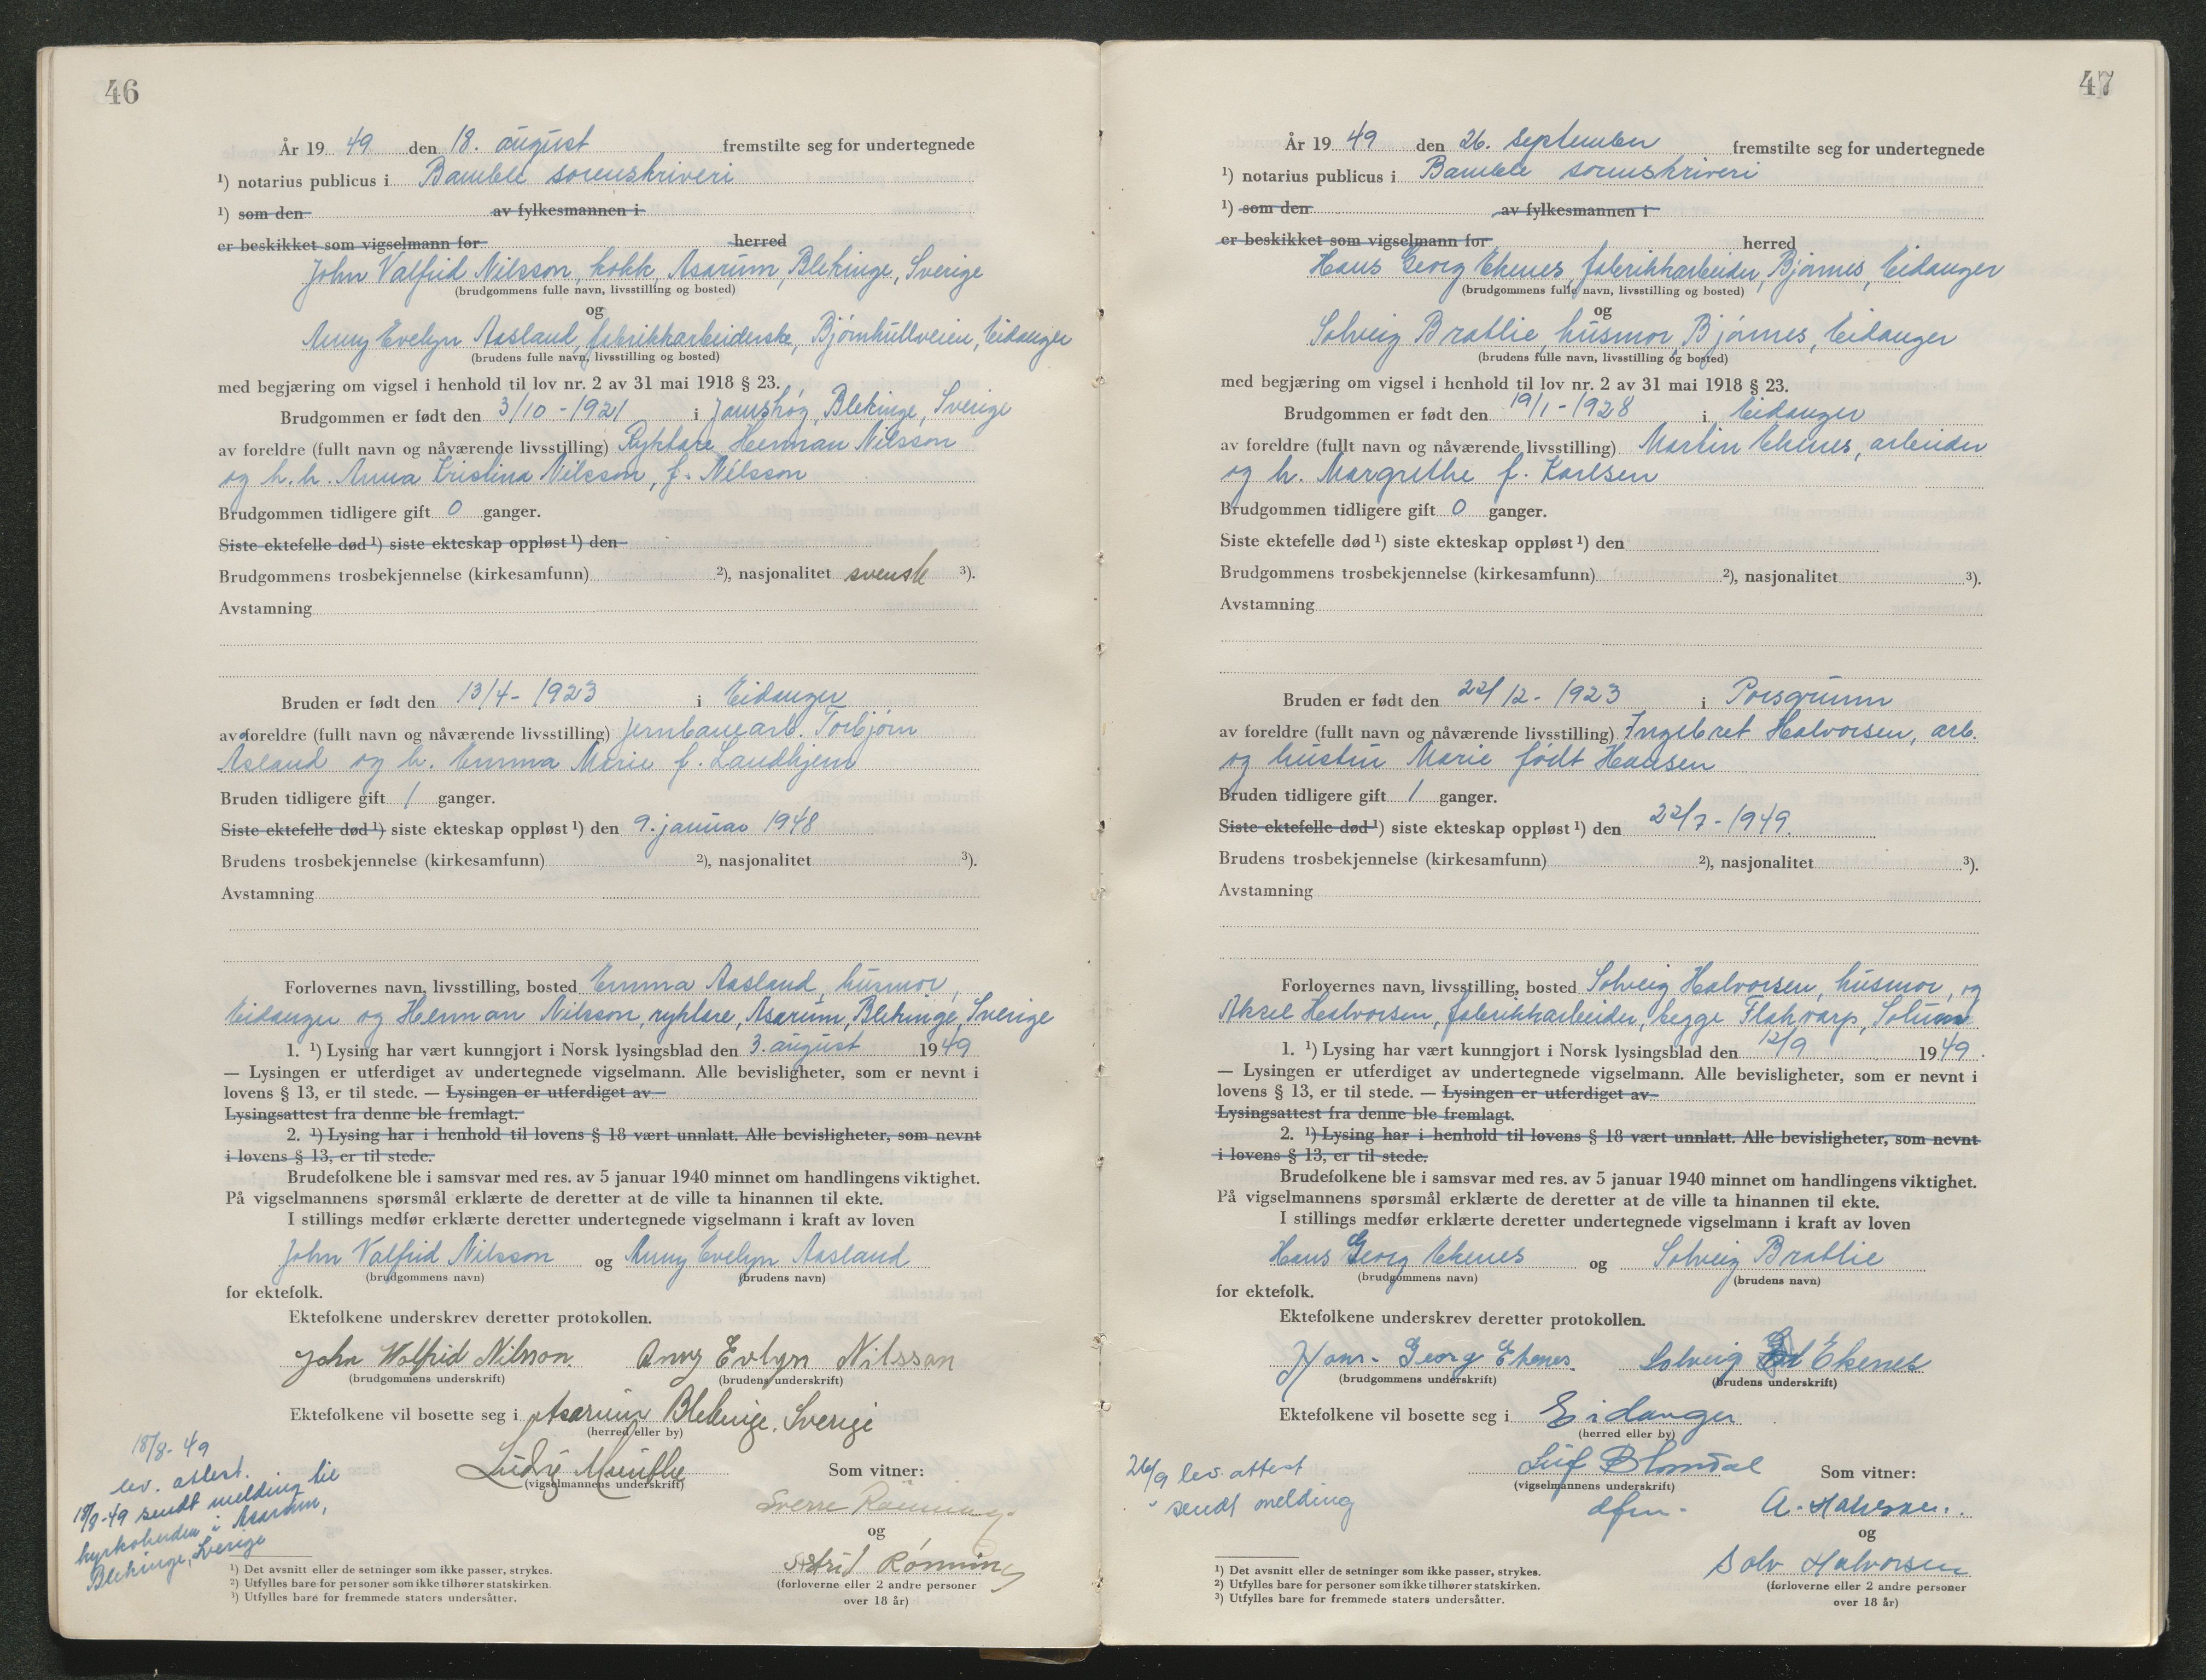 46
År 19 49 den 18. august fremstilte seg for undertegnede
¹) notarius publicus i Bamble sorenskriveri
¹) som den av fylkesmannen i
er beskikket som vigselmann for herred
John Valfrid Nilsson, kokk, Asarum, Blekinge, Sverige
(brudgommens fulle navn, livsstilling og bosted)
og
Anny Evelyn Aasland, fabrikkarbeiderske, Bjørnhullveien, Eidanger
(brudens fulle navn, livsstilling og bosted)
med begjæring om vigsel i henhold til lov nr. 2 av 31 mai 1918 § 23.
Brudgommen er født den 3/10 - 1921 i Jamshög, Blekinge, Sverige
av foreldre (fullt navn og nåværende livsstilling) Ryktare Herman Nilsson
og h. h. Anna Kristina Nilsson, f. Nilsson
Brudgommen tidligere gift 0 ganger.
Siste ektefelle død ¹) siste ekteskap oppløst ¹) den
Brudgommens trosbekjennelse (kirkesamfunn) ²), nasjonalitet svensk ³).
Avstamning
Bruden er født den 13/4 - 1923 i Eidanger
av foreldre (fullt navn og nåværende livsstilling) Jernbanearb. Torbjørn
Aasland og h. Emma Marie f. Landhjem
Bruden tidligere gift 1 ganger.
Siste ektefelle død ¹) siste ekteskap oppløst ¹) den 9. januar 1948
Brudens trosbekjennelse (kirkesamfunn) ²), nasjonalitet ³).
Avstamning
Forlovernes navn, livsstilling, bosted Emma Aasland, husmor,
Eidanger og Herman Nilsson, ryktare, Asarum, Blekinge, Sverige
1. ¹) Lysing har vært kunngjort i Norsk lysingsblad den 3. august 1949
— Lysingen er utferdiget av undertegnede vigselmann. Alle bevisligheter, som er nevnt i
lovens § 13, er til stede. — Lysingen er utferdiget av
Lysingsattest fra denne ble fremlagt.
2. ¹) Lysing har i henhold til lovens § 18 vært unnlatt. Alle bevisligheter, som nevnt
i lovens § 13, er til stede.
Brudefolkene ble i samsvar med res. av 5 januar 1940 minnet om handlingens viktighet.
På vigselmannens spørsmål erklærte de deretter at de ville ta hinannen til ekte.
I stillings medfør erklærte deretter undertegnede vigselmann i kraft av loven
John Valfrid Nilsson og Anny Evelyn Aasland
(brudgommens navn) (brudens navn)
for ektefolk.
Ektefolkene underskrev deretter protokollen.
John Walfrid Nilsson. Anny Evlyn Nilsson
(brudgommens underskrift) (brudens underskrift)
Ektefolkene vil bosette seg i Asarum Blekinge. Sverige
(herred eller by)
18/8 - 49
lev. attest.
18/8-49 sendt melding til
kyrkoherden i Asarum,
Blekinge, Sverige
Munthe Som vitner:
(vigselmannens underskrift)
Sverre Rønning
og
Astrid Rønning
(forloverne eller 2 andre personer
over 18 år)
¹) Det avsnitt eller de setninger som ikke passer, strykes.
²) Utfylles bare for personer som ikke tilhører statskirken.
³) Utfylles bare for fremmede staters undersåtter.
47
År 19 49 den 26. september fremstilte seg for undertegnede
¹) notarius publicus i Bamble sorenskriveri
¹) som den av fylkesmannen i
er beskikket som vigselmann for herred
Hans Georg Ekenes, fabrikkarbeider, Bjørnes, Eidanger
(brudgommens fulle navn, livsstilling og bosted)
og
Solveig Bratlie, husmor, Bjørnes, Eidanger
(brudens fulle navn, livsstilling og bosted)
med begjæring om vigsel i henhold til lov nr. 2 av 31 mai 1918 § 23.
Brudgommen er født den 19/1 - 1928 i Eidanger
av foreldre (fullt navn og nåværende livsstilling) Martin Ekenes, arbeider
og h. Margrethe f. Karlsen
Brudgommen tidligere gift 0 ganger.
Siste ektefelle død ¹) siste ekteskap oppløst ¹) den
Brudgommens trosbekjennelse (kirkesamfunn) ²), nasjonalitet ³).
Avstamning
Bruden er født den 22/12 - 1923 i Porsgrunn
av foreldre (fullt navn og nåværende livsstilling) Ingebret Halvorsen, arb.
og hustru Marie født Hansen
Bruden tidligere gift 1 ganger.
Siste ektefelle død ¹) siste ekteskap oppløst ¹) den 22/7 - 1949.
Brudens trosbekjennelse (kirkesamfunn) ²), nasjonalitet ³).
Avstamning
Forlovernes navn, livsstilling, bosted Solveig Halvorsen, husmor, og
Aksel Halvorsen, fabrikkarbeider, begge Flakvarp, Solum
1. ¹) Lysing har vært kunngjort i Norsk lysingsblad den 12/9 1949.
— Lysingen er utferdiget av undertegnede vigselmann. Alle bevisligheter, som er nevnt i
lovens § 13, er til stede. — Lysingen er utferdiget av
Lysingsattest fra denne ble fremlagt.
2. ¹) Lysing har i henhold til lovens § 18 vært unnlatt. Alle bevisligheter, som nevnt
i lovens § 13, er til stede.
Brudefolkene ble i samsvar med res. av 5 januar 1940 minnet om handlingens viktighet.
På vigselmannens spørsmål erklærte de deretter at de ville ta hinannen til ekte.
I stillings medfør erklærte deretter undertegnede vigselmann i kraft av loven
Hans Georg Ekenes og Solveig Bratlie
(brudgommens navn) (brudens navn)
for ektefolk.
Ektefolkene underskrev deretter protokollen.
Hans-Georg Ekenes. Solveig Ekenes
(brudgommens underskrift) (brudens underskrift)
Ektefolkene vil bosette seg i Eidanger
(herred eller by)
26/9 lev. attest
" sendt melding
Leif Blomdal Som vitner:
(vigselmannens underskrift)
dfm. A. Halvorsen.
og
Solv Halvorsen
(forloverne eller 2 andre personer
over 18 år)
¹) Det avsnitt eller de setninger som ikke passer, strykes.
²) Utfylles bare for personer som ikke tilhører statskirken.
³) Utfylles bare for fremmede staters undersåtter.